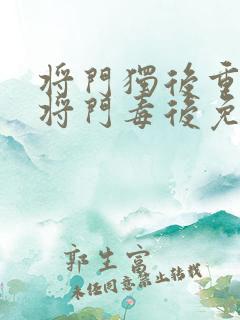 將門獨後重
將門毒後免
郭生富
未經同意禁止转载